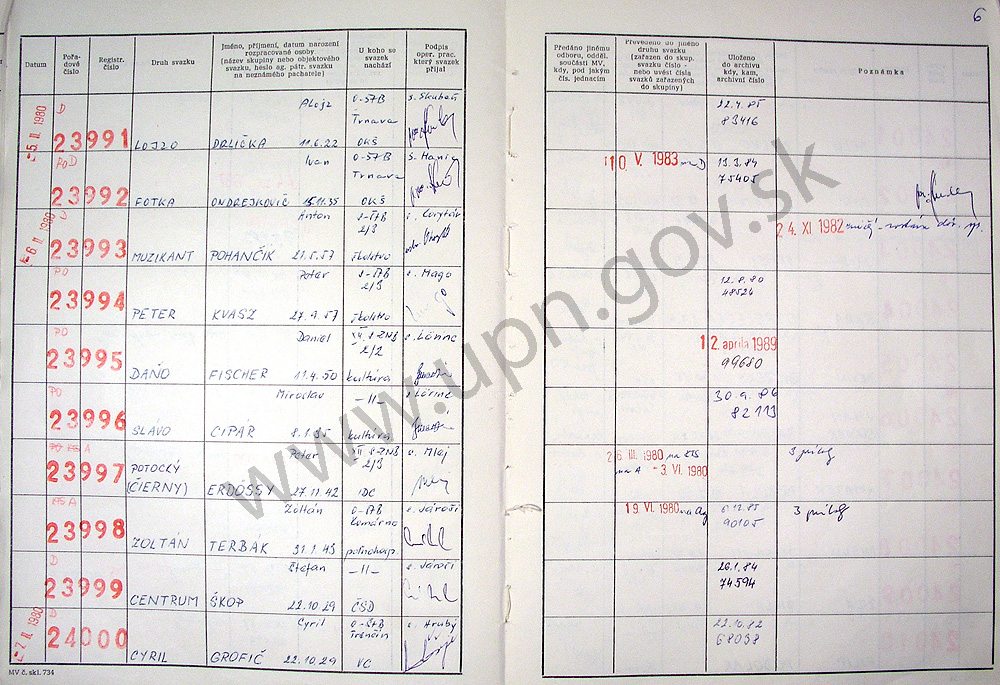 6
Datum
Pořa-
dové
číslo
Registr.
číslo
Druh svazku
Jméno, příjmení, datum narození
rozpracované osoby
(název skupiny nebo objektového
svazku, heslo ag. pátr. svazku
na neznámého pachatele)
U koho se
svazek
nachází
Podpis
oper. prac.
který svazek
přijal
Předáno jinému
odboru, odděl.
součásti MV,
kdy, pod jakým
čís. jednacím
Převedeno do jiného
druhu svazku
(zařazen do skup.
svazku číslo -
nebo uvést čísla
svazků zařazených
do skupiny)
Uloženo
do archivu
kdy, kam,
archivní číslo
Poznámka
-5. II. 1980
D
23991
LOJZO
Alojz
DRLIČKA 11.6.22
0-ŠTB
Trnava
OKŠ
s. Skubeň
22.4.85
83416
PO D
23992
FOTKA
Ivan
ONDREJKOVIČ 15.11.35
0-ŠTB
Trnava
OKŠ
s. Hanic
10. V. 1983 na D
13.3.84
75405
-6. II. 1980
D
23993
MUZIKANT
Anton
POHANČÍK 21.5.57
2/3
školstvo
24. XI 1982
PO
23994
PETER
Peter
KVASZ 27.9.57
2/3
školstvo
s. Mago
12.8.80
48524
PO
23995
DAŇO
Daniel
FISCHER 11.4.50
2/2
kultúra
s. Lörinc
12. apríla 1989
99680
PO
23996
SLÁVO
Miroslav
CIPÁR 8.1.35
-11-
kultúra
s. Lörinc
30.9.86
82113
A
23997
POTOCKÝ
(ČIERNY)
Peter
ERDÖSSY 27.11.42
2/3
IDC
s. Mlej
26. III. 1980 na KTS
na A -3. VI. 1980
3 príloh
KTS A
23998
ZOLTÁN
Zoltán
TERBÁK 31.1.43
0-ŠTB
Komárno
poľnohosp
s. Jároši
19. VI. 1980 na Ag
6.12.85
90105
3 príloh
D
23999
CENTRUM
Štefan
ŠKOP 22.10.29
-11-
ČSD
s. Jároši
26.1.84
74594
-7. II. 1980
D
24000
CYRIL
Cyril
GROFIČ 22.10.29
0-ŠTB
Trenčín
VC
s. Hrubý
22.10.82
68038
MV č. skl. 734
www.upn.gov.sk